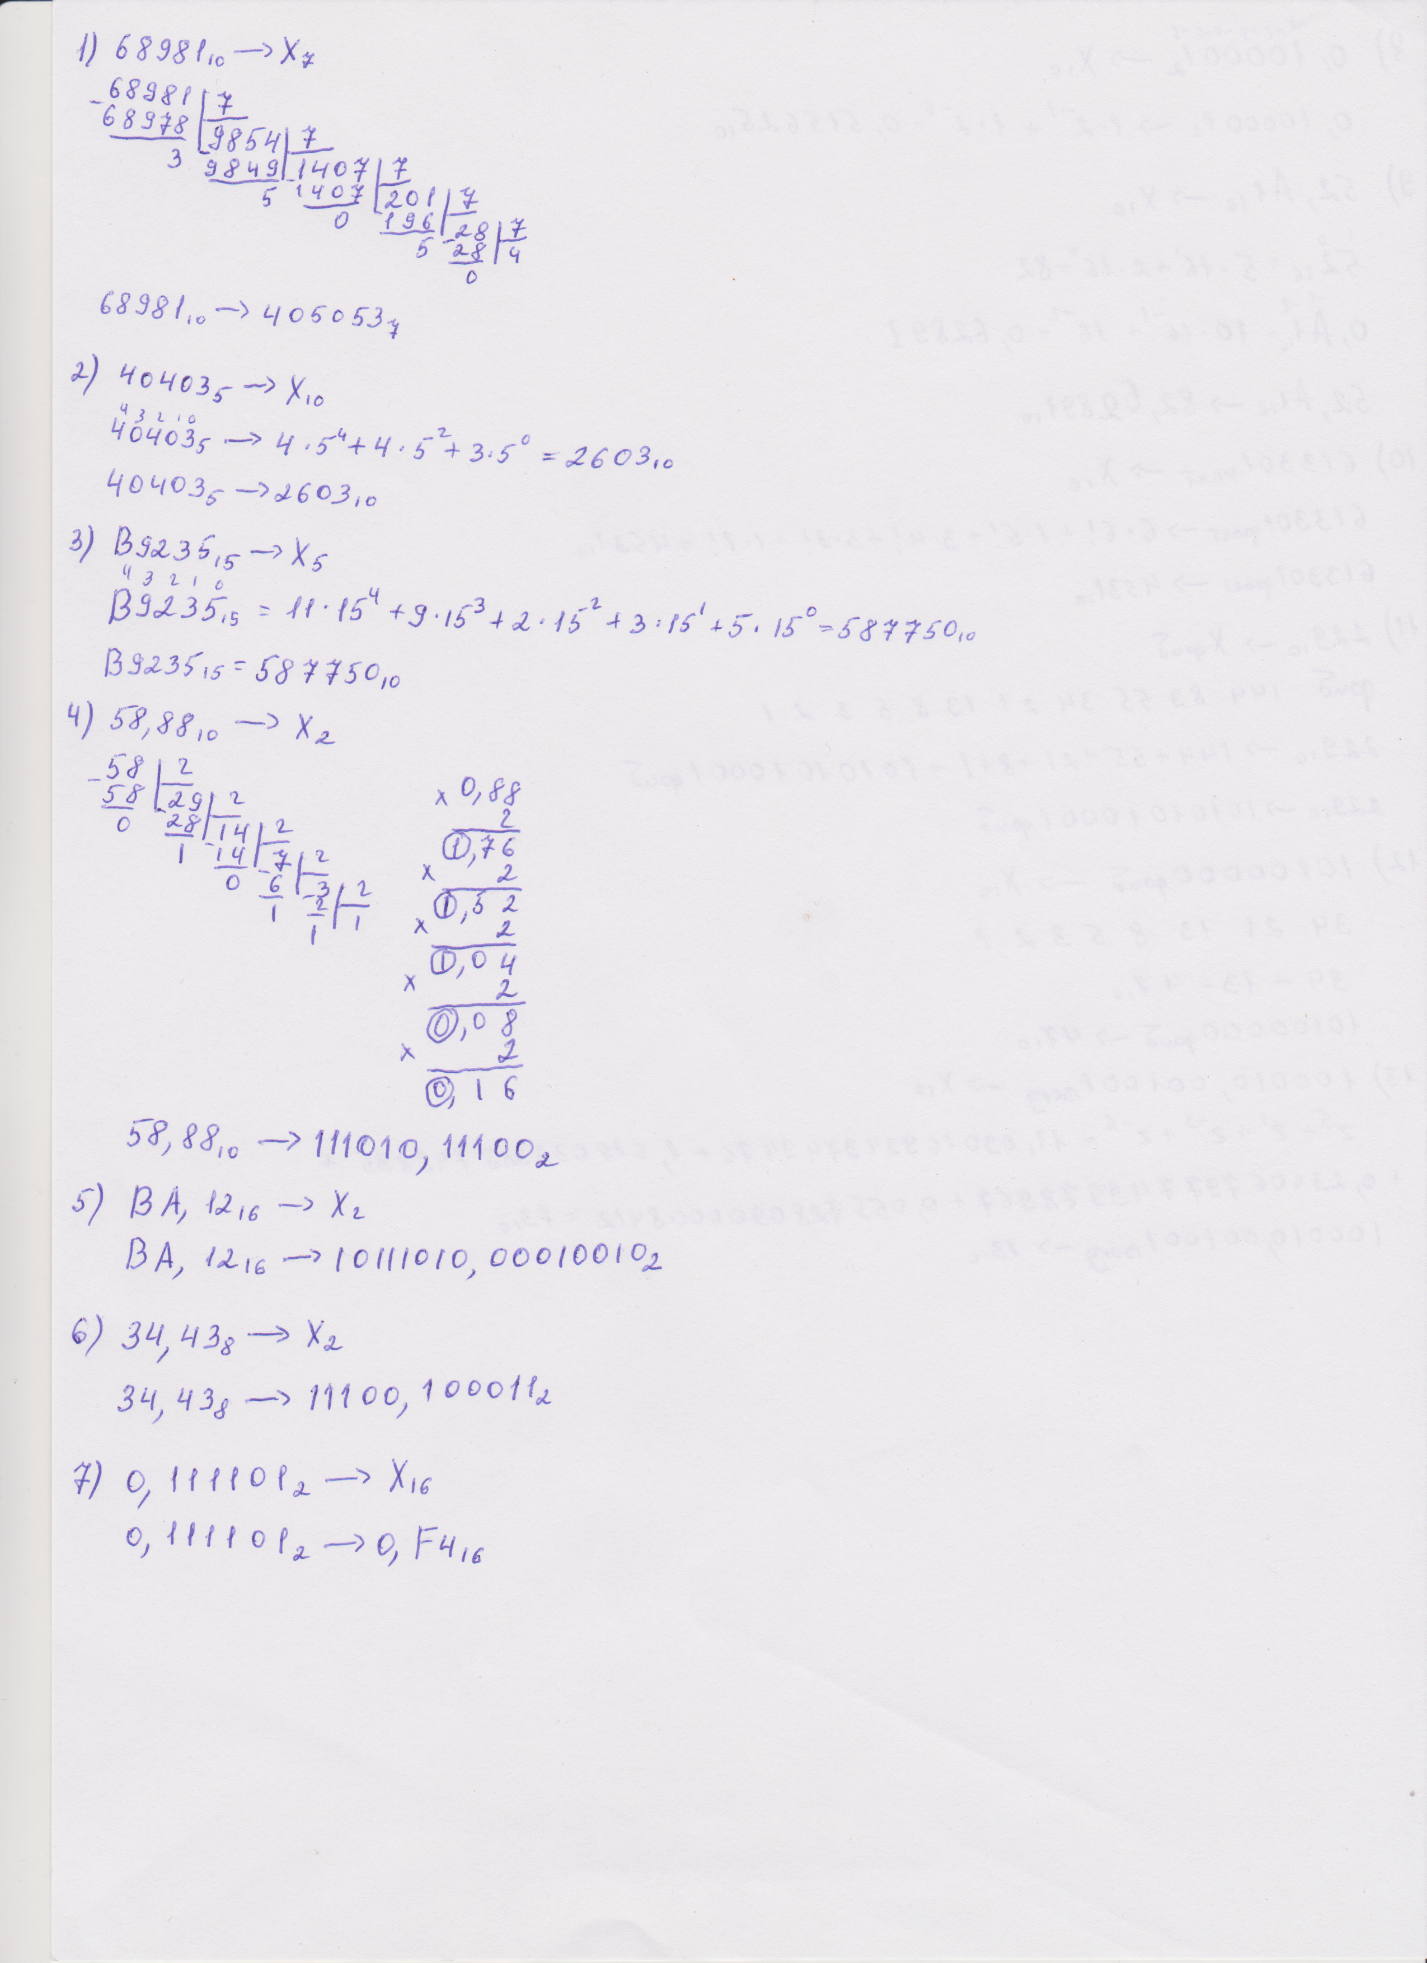 1) 68981₁₀ → X₇
-68981 | 7
68978 | 9854 | 7
3 9849 | 1407 | 7
5 1407 | 201 | 7
0 196 | 28 | 7
5 28 | 4
0
68981₁₀ → 405053₇
2) 40403₅ → X₁₀
4 3 2 1 0
40403₅ → 4·5⁴+4·5²+3·5⁰ = 2603₁₀
40403₅ → 2603₁₀
3) B9235₁₅ → X₅
4 3 2 1 0
B9235₁₅ = 11·15⁴+9·15³+2·15²+3·15¹+5·15⁰=587750₁₀
B9235₁₅ = 587750₁₀
4) 58,88₁₀ → X₂
-58 | 2
58 | 29 | 2
0 -28 | 14 | 2
1 -14 | 7 | 2
0 -6 | 3 | 2
1 -2 | 1
1
x 0,88
2
1,76
x 2
1,52
x 2
1,04
x 2
0,08
x 2
0,16
58,88₁₀ → 111010,11100₂
5) BA,12₁₆ → X₂
BA,12₁₆ → 10111010,00010010₂
6) 34,43₈ → X₂
34,43₈ → 11100,100011₂
7) 0,111101₂ → X₁₆
0,111101₂ → 0,F4₁₆